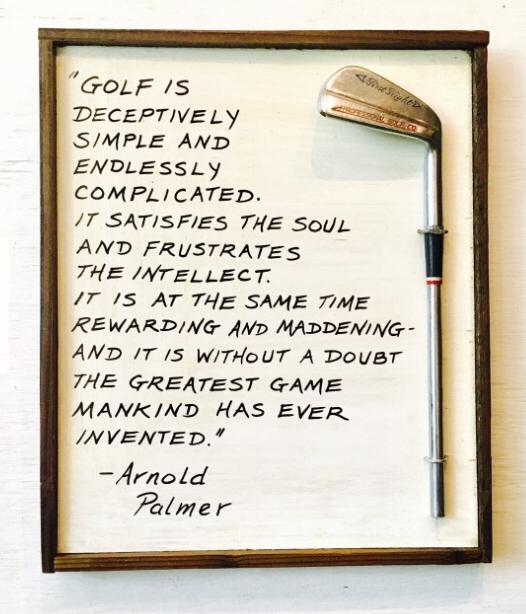 "GOLF IS
DECEPTIVELY
SIMPLE AND
ENDLESSLY
COMPLICATED.
IT SATISFIES THE SOUL
AND FRUSTRATES
THE INTELLECT.
IT IS AT THE SAME TIME
REWARDING AND MADDENING-
AND IT IS WITHOUT A DOUBT
THE GREATEST GAME
MANKIND HAS EVER
INVENTED."
-Arnold
Palmer
First Flight
PROFESSIONAL GOLF CO.